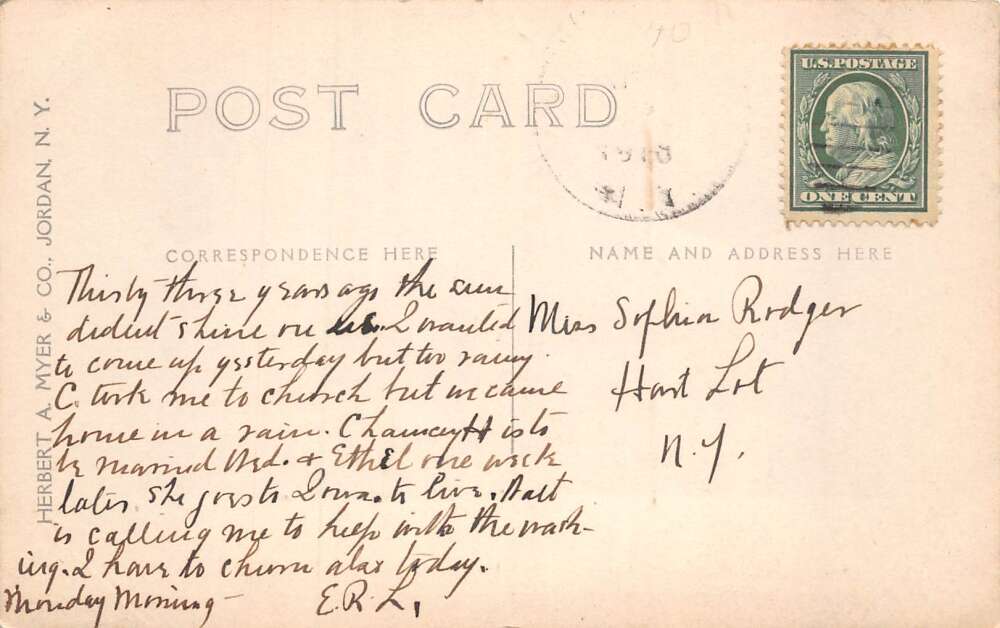 POST CARD
U.S.POSTAGE
ONE CENT
1910
N.Y.
HERBERT A. MYER & CO., JORDAN, N. Y.
CORRESPONDENCE HERE
NAME AND ADDRESS HERE
Thirty three years ago the sun
dident shine on us. I wanted
to come up yesterday but too rainy.
C. took me to church but we came
home in a rain. Chauncey H is to
be married Wed. & Ethel one week
later she goes to Iowa to live. Walt
is calling me to help with the wash-
ing. I have to churn also today.
Monday Morning - E.R.L.
Miss Sophia Rodger
Hart Lot
N.Y.